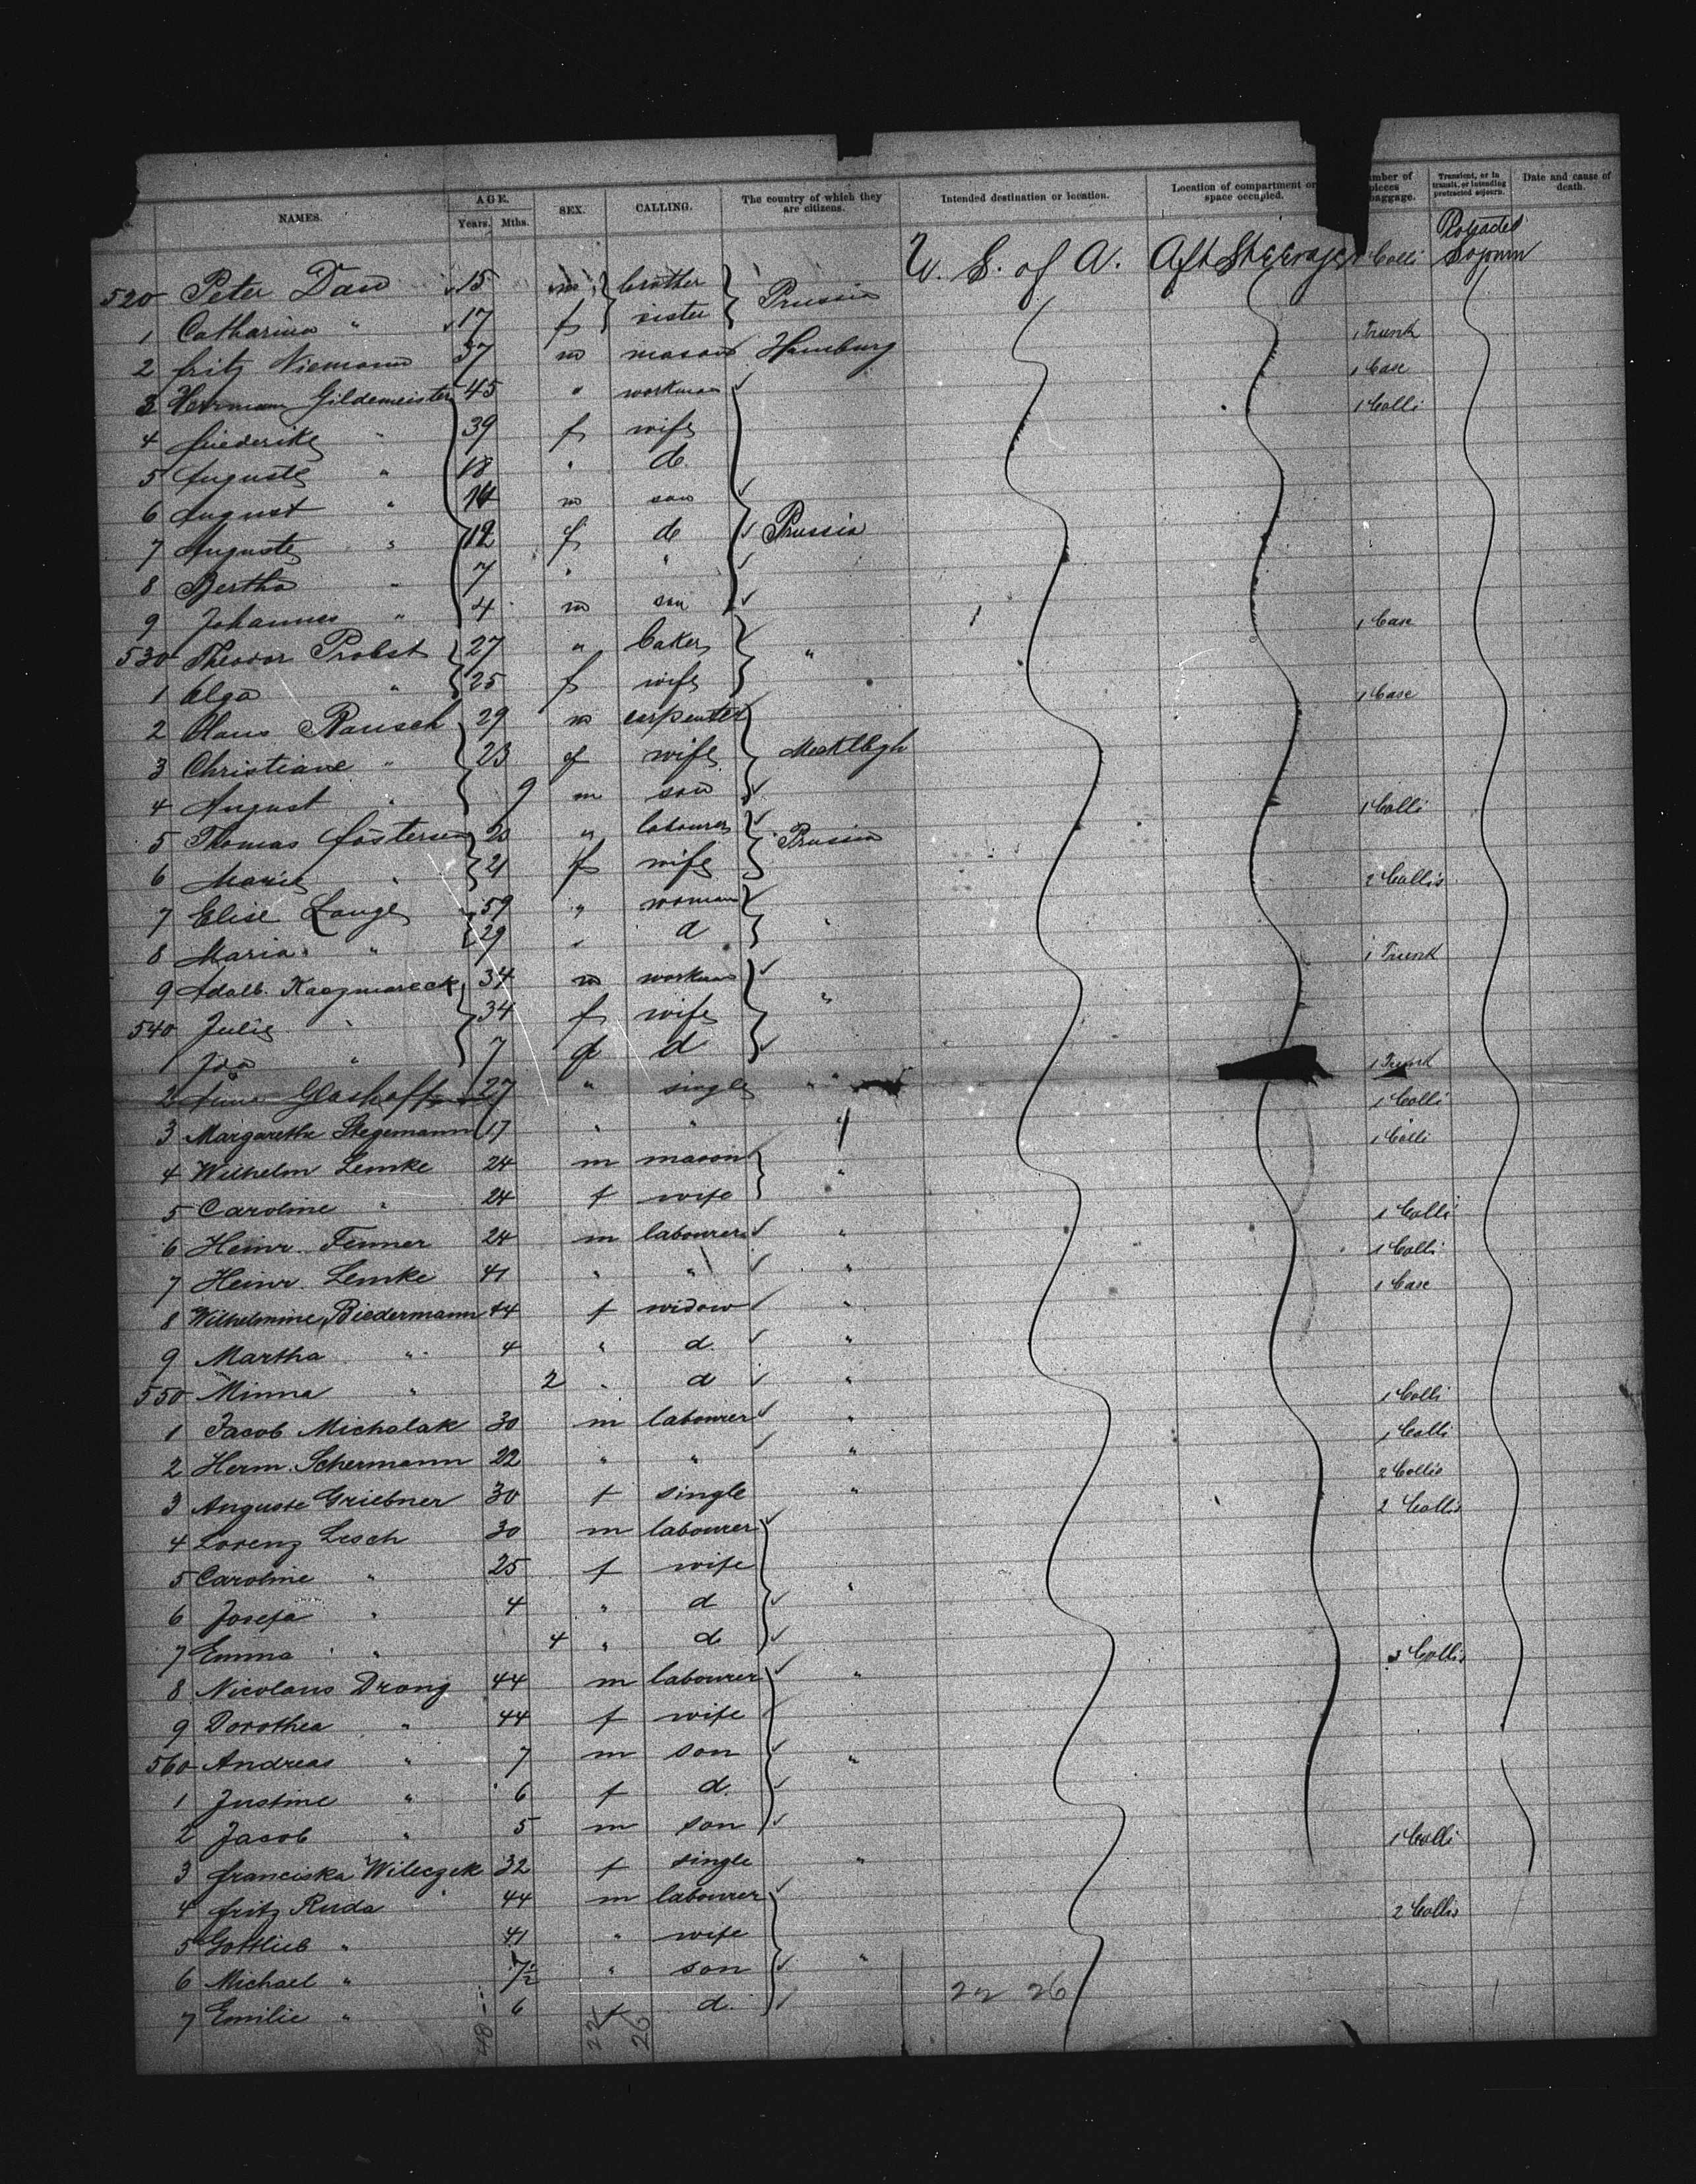 No. NAMES. AGE. Years. Mths. SEX. CALLING. The country of which they are citizens. Intended destination or location. Location of compartment or space occupied. Number of pieces baggage. Transient, or in transit, or intending protracted sojourn. Date and cause of death.
520 Peter Daw 15 m brother Prussia U. S. of A. Aft Steerage 1 Colli Sojourn
1 Catharina " 17 f sister
2 Fritz Niemann 37 m mason Hamburg 1 Trunk
3 Herrmann Gildemeister 45 " workman 1 Case
4 Friederike " 39 f wife 1 Colli
5 Auguste " 18 " d.
6 August " 14 m son
7 Auguste " 12 f d Prussia
8 Bertha " 7 " "
9 Johannes " 4 m son
530 Theodor Probst 27 " baker " 1 Case
1 Olga " 25 f wife
2 Claus Rausch 29 m carpenter 1 Case
3 Christiane " 23 f wife Mecklbgh
4 August " 9 m son
5 Thomas 23 " labourer Prussia 1 Colli
6 Marie " 21 f wife
7 Elise Lange 59 " woman 2 Collis
8 Maria " 29 " d "
9 Adalb. Kaczmareck 34 m workman 1 Trunk
540 Julie " 34 f wife "
1 Ida " 7 f d
2 Glashoff 27 " single " 1 Trunk
3 Margarethe Stegemann 17 " " 1 Colli
4 Wilhelm Lemke 24 m mason " 1 Colli
5 Caroline " 24 f wife
6 Heinr. Fenner 24 m labourer " 1 Colli
7 Heinr. Lemke 41 " " " 1 Colli
8 Wilhelmine Biedermann 44 f widow " 1 Case
9 Martha " 4 " d. "
550 Minna " 2 " d "
1 Jacob Michalak 30 m labourer " 1 Colli
2 Herm. Schermann 22 " " " 1 Colli
3 Auguste Griebner 30 f single " 2 Collis
4 Lorenz Lesch 30 m labourer 2 Collis
5 Caroline " 25 f wife
6 Josefa " 4 " d "
7 Emma " 4 " d
8 Nicolaus Drong 44 m labourer " 3 Collis
9 Dorothea " 44 f wife
560 Andreas " 7 m son "
1 Justine " 6 f d.
2 Jacob " 5 m son
3 Franciska Wilczek 32 f single " 1 Colli
4 Fritz Ruda 44 m labourer
5 Gottlieb " 41 " wife 2 Collis
6 Michael " 7½ " son "
7 Emilie " 6 f d. 22 26
48 22 26